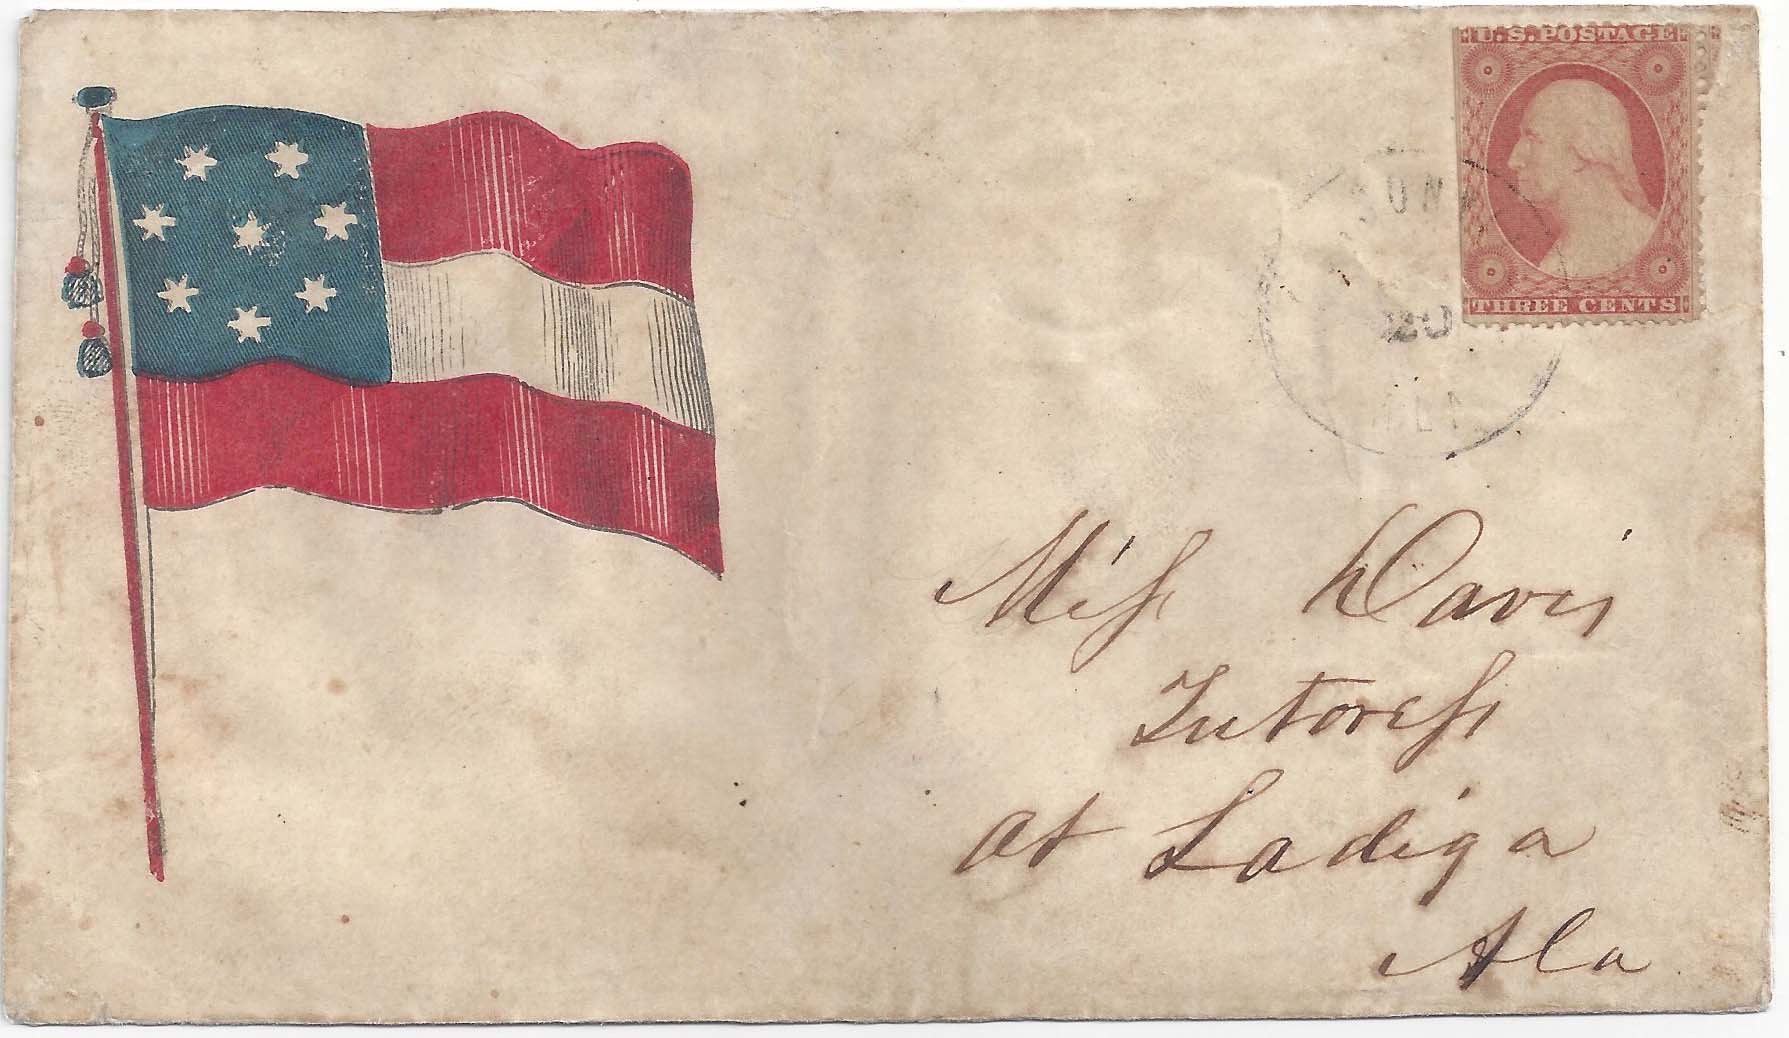 U.S. POSTAGE
THREE CENTS
20
Miſs Davis
Tutoreſs
at Ladiga
Ala